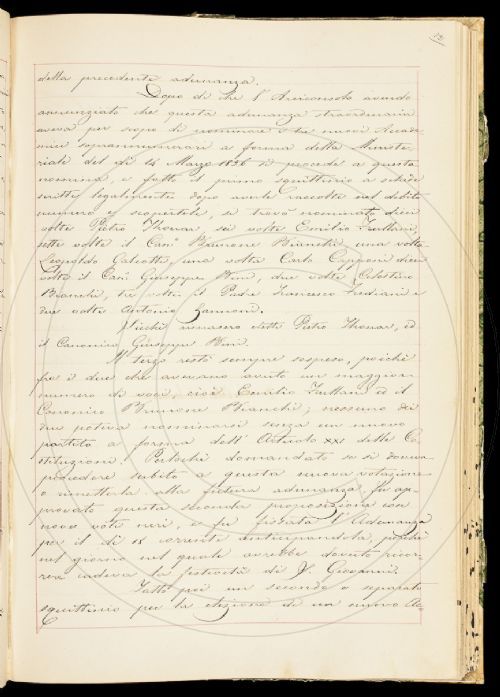 12
della precedente adunanza.
Dopo di che l'Arciconsolo avendo
annunziato che questa adunanza straordinaria
aveva per scopo di nominare tre nuovi Accade-
mici soprannumerari a forma della Ministe-
riale del dì 14 Marzo 1826 si procedé a questa
nomina, e fatto il primo squittinio a schede
scritte legalmente dopo averle raccolte nel debito
numero e scopertele, si trovò nominato dieci
volte Pietro Thouar sei volte Emilio Frullani,
sette volte il Can.co Brunone Bianchi, una volta
Leopoldo Galeotti, una volta Carlo Capponi dieci
volte il Can. Giuseppe Bini, due volte Celestino
Bianchi, tre volte il Padre Francesco Frediani e
due volte Antonio Zannoni.
Sicché rimasero eletti Pietro Thouar, ed
il Canonico Giuseppe Bini.
Il terzo restò sempre sospeso, poiché
fra i due che avevano avuto un maggior
numero di voci, cioè Emilio Frullani ed il
Canonico Brunone Bianchi; nessuno dei
due poteva nominarsi senza un nuovo
partito a forma dell'Articolo XXI delle Co-
stituzioni. Perloché domandato se si doveva
procedere subito a questa nuova votazione
o rimetterla alla futura adunanza, fu ap-
provato questa seconda proposizione con
nove voti neri, e fu fissata l'Adunanza
per il dì 18 corrente anticipandola, poiché
nel giorno nel quale avrebbe dovuto ricor-
rere cadeva la festività di S. Giovanni.
Fatto poi un secondo e separato
squittinio per la elezione di un nuovo Ac-